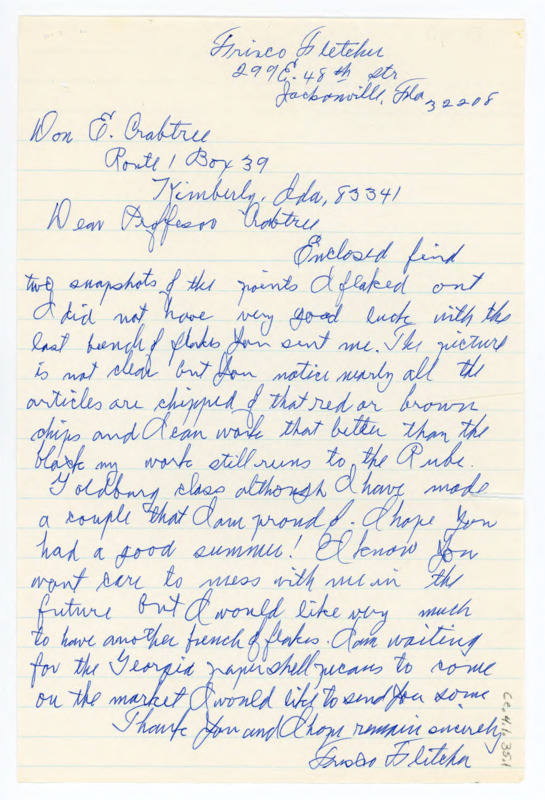 Frisco Fletcher
299 E. 48th Str
Jacksonville, Fla 32208
Don E. Crabtree
Route 1 Box 39
Kimberly, Ida, 83341
Dear Proffesor Crabtree
Enclosed find
two snapshots of the points I flaked out
I did not have very good luck with the
last bunch of flakes you sent me. The picture
is not clear but you notice nearly all the
articles are chipped of that red or brown
chips and I can work that better than the
black my work still runs to the Rube.
Goldburg class although I have made
a couple that I am proud of. I hope you
had a good summer! I know you
wont care to mess with me in the
future but I would like very much
to have another bunch of flakes. I am waiting
for the Georgia papershell pecans to come
on the market I would like to send you some
Thank you and I hope remain sincerely
Frisco Fletcher
Cc.4.1.35.1